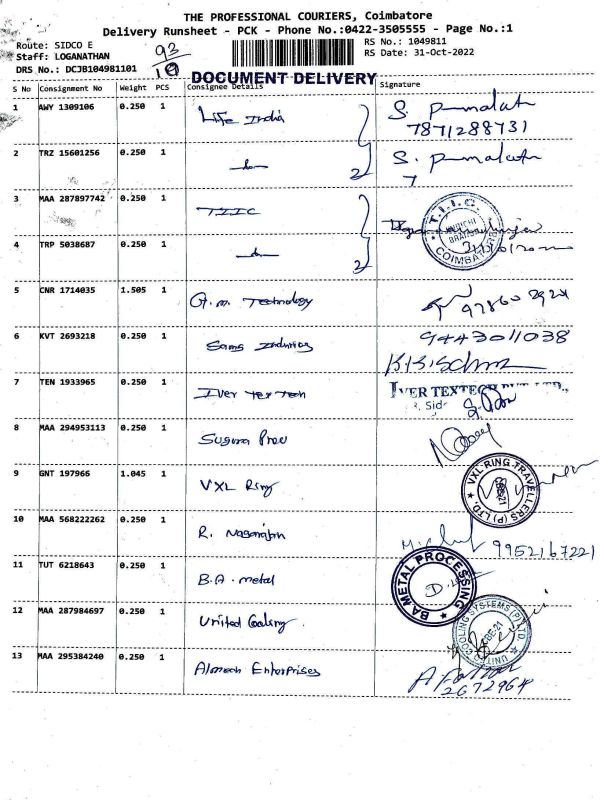 THE PROFESSIONAL COURIERS, Coimbatore
Delivery Runsheet - PCK - Phone No.:0422-3505555 - Page No.:1
Route: SIDCO E
RS No.: 1049811
Staff: LOGANATHAN
RS Date: 31-Oct-2022
DRS No.: DCJB104981101
93/10
DOCUMENT DELIVERY
S No Consignment No Weight PCS Consignee Details Signature
1 AWY 1309106 0.250 1 Life India
7871288731
2 TRZ 15601256 0.250 1
2
3 MAA 287897742 0.250 1 TIIC
T.I.I.C. BRANCH COIMBATORE
4 TRP 5038687 0.250 1
2
5 CNR 1714035 1.505 1 G.M. Technology
6 KVT 2693218 0.250 1
9443011038
7 TEN 1933965 0.250 1 Iver Tex Tech
IVER TEXTECH PVT. LTD.,
8 MAA 294953113 0.250 1 Suguna
9 GNT 197966 1.045 1 VXL Ring
VXL RING TRAVELLERS (P) LTD.
10 MAA 568222262 0.250 1 R. Nagarajan
9952167221
11 TUT 6218643 0.250 1 B.A. metal
BA METAL PROCESSING
12 MAA 287984697 0.250 1 United Cooling
UNITED COOLING SYSTEMS (P) LTD.
13 MAA 295384240 0.250 1 Almech Enterprises
2672964